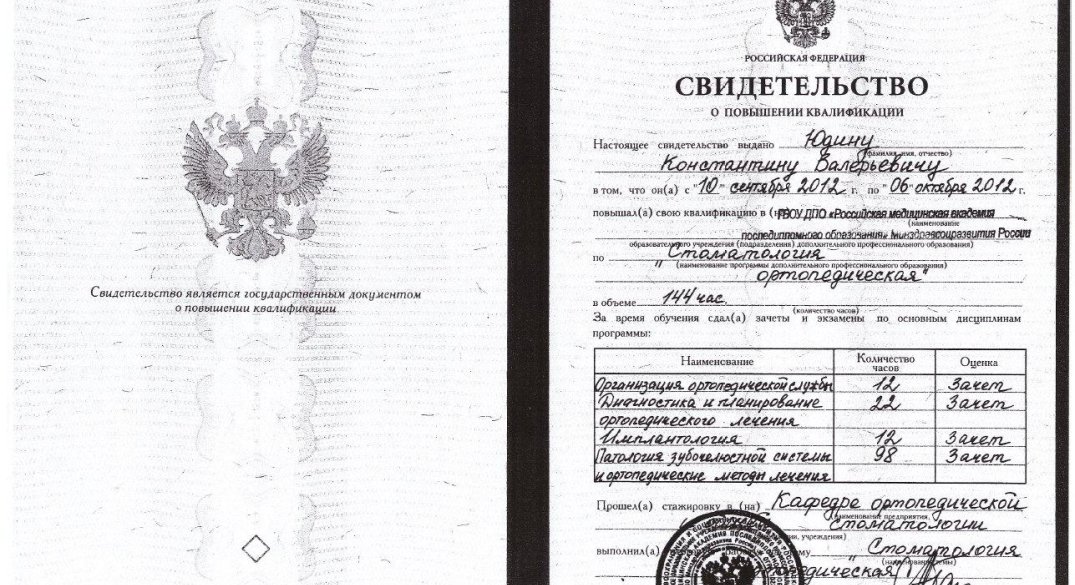 Свидетельство является государственным документом
о повышении квалификации
РОССИЙСКАЯ ФЕДЕРАЦИЯ
СВИДЕТЕЛЬСТВО
О ПОВЫШЕНИИ КВАЛИФИКАЦИИ
Настоящее свидетельство выдано Юдину
(фамилия, имя, отчество)
Константину Валерьевичу
в том, что он(а) с "10" сентября 2012 г. по "06" октября 2012 г.
повышал(а) свою квалификацию в (на) ГБОУ ДПО «Российская медицинская академия
(наименование
последипломного образования» Минздравсоцразвития России
образовательного учреждения (подразделения) дополнительного профессионального образования)
по "Стоматология
(наименование программы дополнительного профессионального образования)
ортопедическая"
в объеме 144 час.
(количество часов)
За время обучения сдал(а) зачеты и экзамены по основным дисциплинам
программы:
Наименование Количество часов Оценка
Организация ортопедической службы 12 Зачет
Диагностика и планирование 22 Зачет
ортопедического лечения
Имплантология 12 Зачет
Патология зубочелюстной системы 98 Зачет
и ортопедические методы лечения
Прошел(а) стажировку в (на) Кафедре ортопедической
(наименование предприятия,
стоматологии
учреждения)
выполнил(а) Стоматология
(наименование темы)